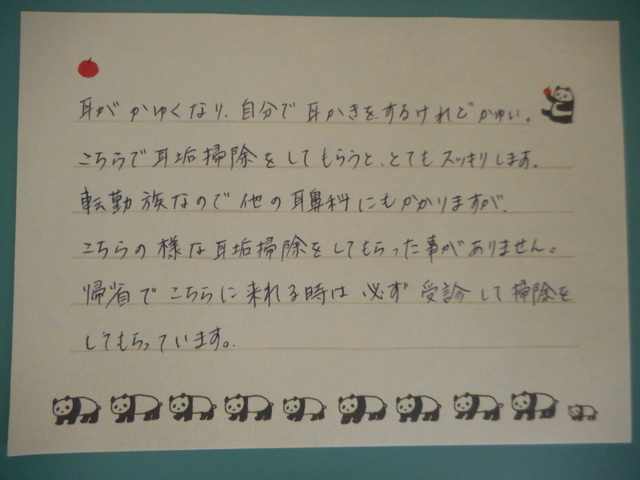 耳がかゆくなり、自分で耳かきをするけれどかゆい。
こちらで耳垢掃除をしてもらうと、とてもスッキリします。
転勤族なので他の耳鼻科にもかかりますが、
こちらの様な耳垢掃除をしてもらった事がありません。
帰省でこちらに来れる時は必ず受診して掃除を
してもらっています。